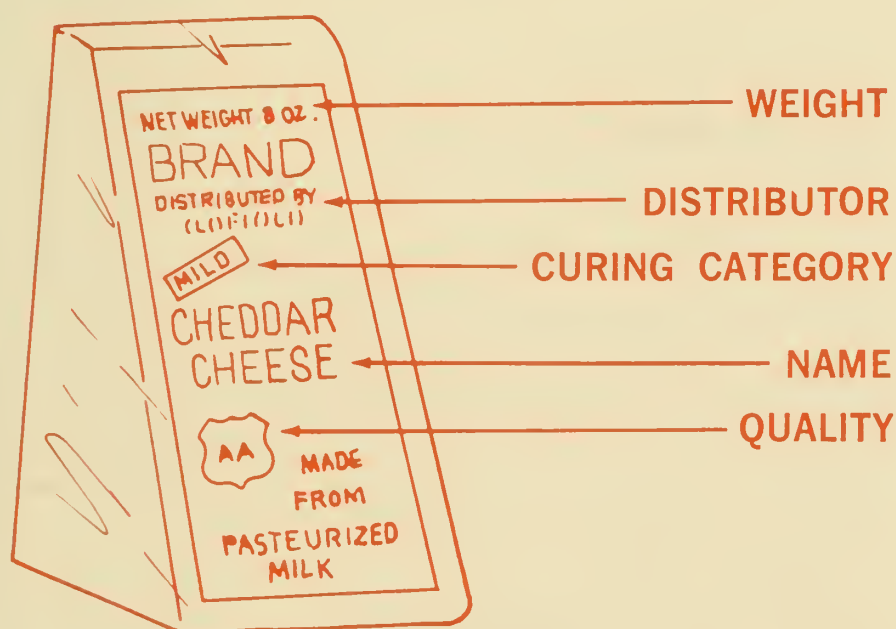 NET WEIGHT 8 OZ.
BRAND
DISTRIBUTED BY
MILD
CHEDDAR
CHEESE
AA
MADE
FROM
PASTEURIZED
MILK
WEIGHT
DISTRIBUTOR
CURING CATEGORY
NAME
QUALITY